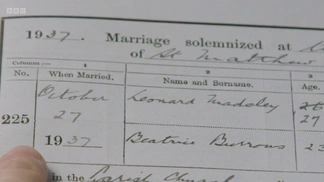 BBC
1937. Marriage solemnized at
of St Matthew
Columns:— 1 2 3
No. When Married. Name and Surname. Age.
October Leonard Madsley 26
225 27 27
1937 Beatrice Burrows 23
in the Parish Church